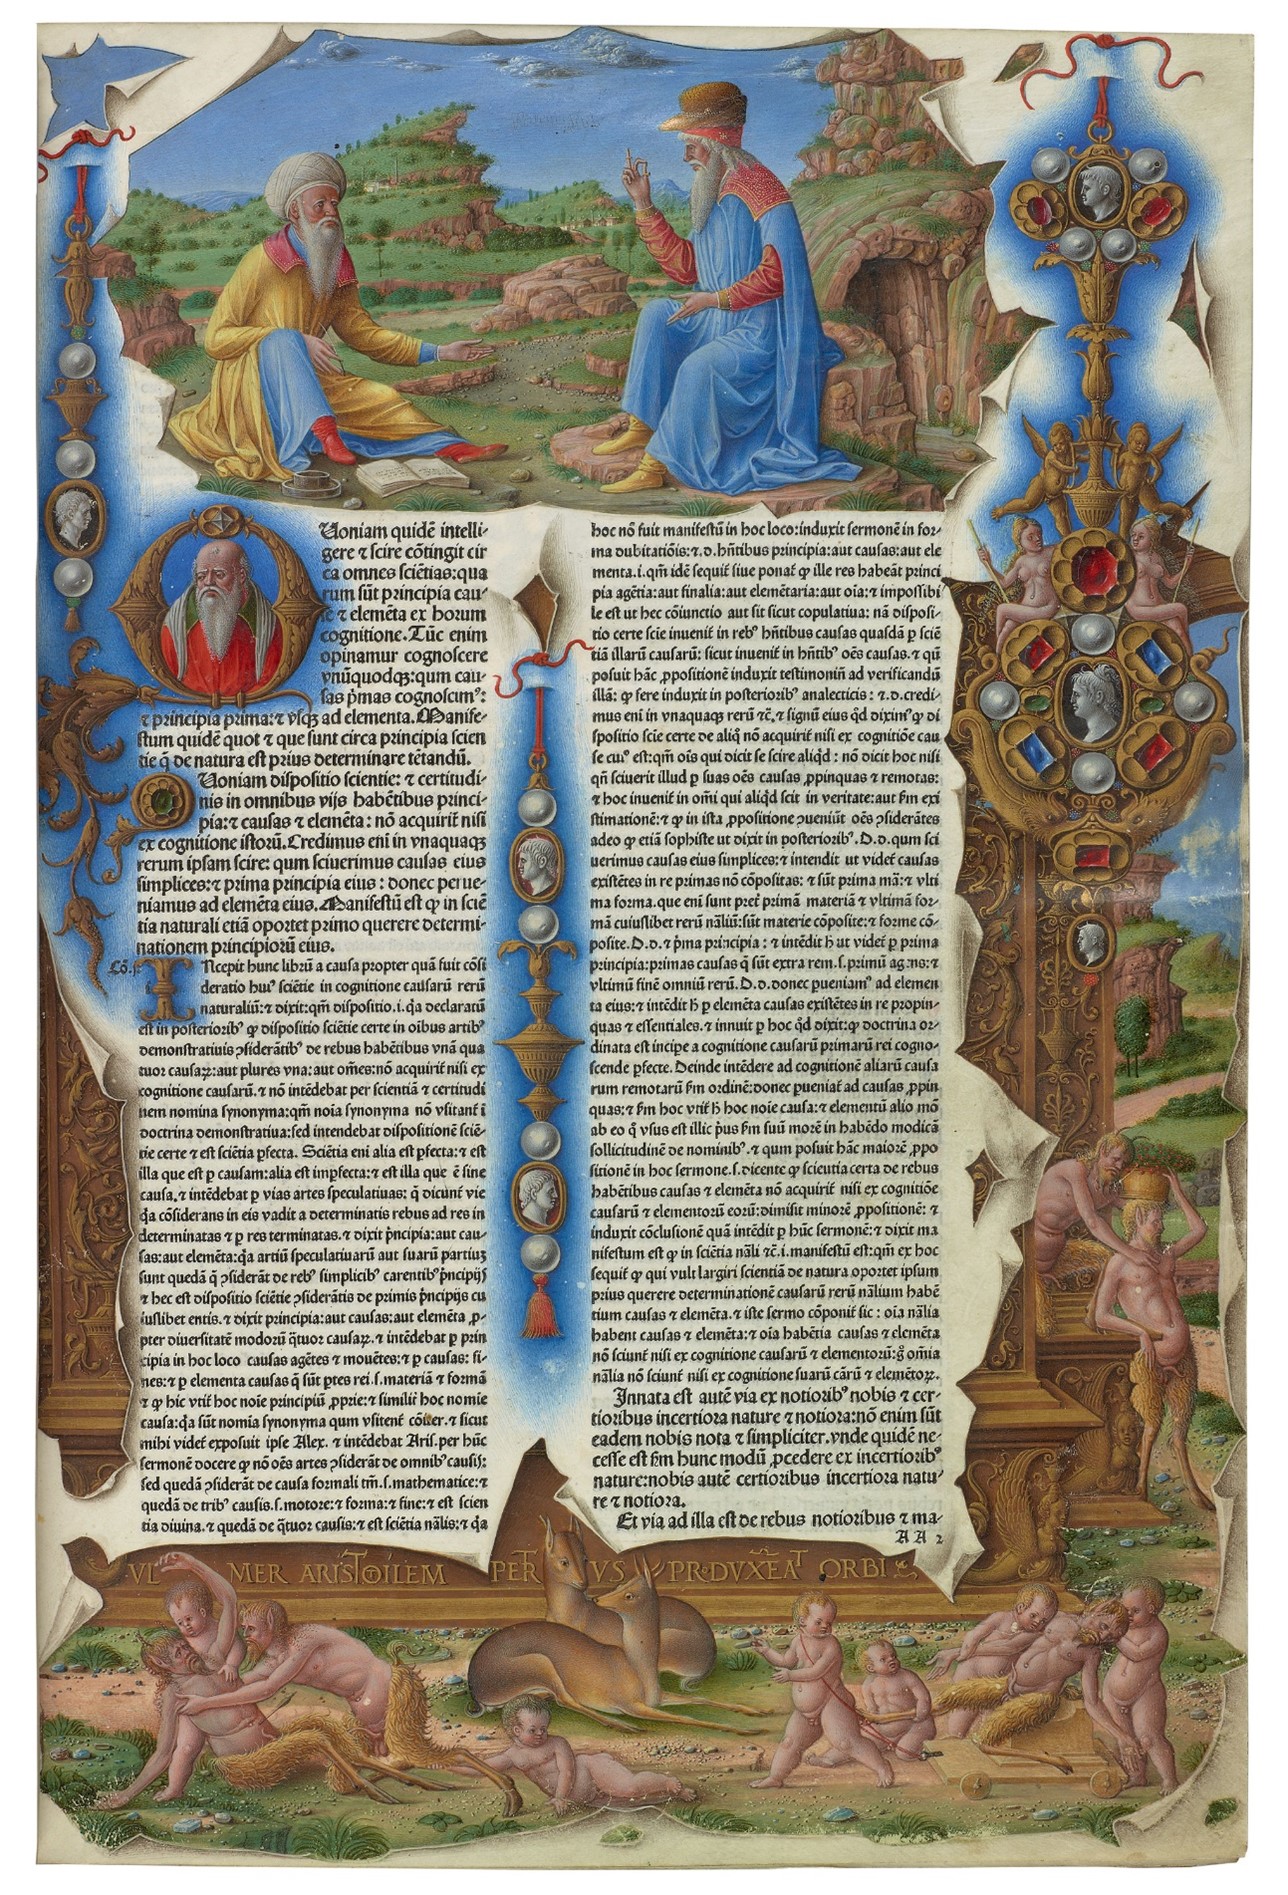 Uoniam quidẽ intelli-
gere ⁊ scire cõtingit cir
ca omnes sciẽtias: qua
rum sũt principia cau-
se ⁊ elemẽta ex horum
cognitione. Tũc enim
opinamur cognoscere
vnũquodqꝫ: qum cau-
sas p̃mas cognoscimꝰ:
⁊ principia prima: ⁊ vsqꝫ ad elementa. Manife-
stum quidẽ quot ⁊ que sunt circa principia scien
tie q̃ de natura est prius determinare tẽtandũ.
Uoniam dispositio scientie: ⁊ certitudi-
nis in omnibus vijs habẽtibus princi-
pia: ⁊ causas ⁊ elemẽta: nõ acquirit̃ nisi
ex cognitione istorũ. Credimus eni in vnaquaqꝫ
rerum ipsam scire: qum sciuerimus causas eius
simplices: ⁊ prima principia eius: donec perue-
niamus ad elemẽta eius. Manifestũ est ꝙ in sciẽ
tia naturali etiã oportet primo querere determi-
nationem principiorũ eius.
Cõ. p.
INcepit hunc librũ a causa propter quã fuit cõsi
deratio huiꝰ sciẽtie in cognitione causarũ rerũ
naturaliũ: ⁊ dixit: qm̃ dispositio. i. q̃a declaratũ
est in posteriorib̾ ꝙ dispositio sciẽtie certe in oibus artib̾
demonstratiuis ꝯsiderãtib̾ de rebus habẽtibus vnã qua
tuor causaꝝ: aut plures vna: aut om̃es: nõ acquirit̃ nisi ex
cognitione causarũ. ⁊ nõ intẽdebat per scientiã ⁊ certitudi
nem nomina synonyma: qm̃ noĩa synonyma nõ vsitant̃ ĩ
doctrina demonstratiua: sed intendebat dispositionẽ sciẽ-
tie certe ⁊ est sciẽtia ꝑfecta. Sciẽtia eni alia est ꝑfecta: ⁊ est
illa que est ꝑ causam: alia est imꝑfecta: ⁊ est illa que ẽ sine
causa. ⁊ intẽdebat ꝑ vias artes speculatiuas: q̃ dicunt̃ vie
q̃a cõsiderans in eis vadit a determinatis rebus ad res in
determinatas ⁊ ꝑ res terminatas. ⁊ dixit p̃ncipia: aut cau-
sas: aut elemẽta: q̃a artiũ speculatiuarũ aut suarũ partiuꝫ
sunt quedã q̃ ꝯsiderãt de reb̾ simplicib̾ carentib̾ p̃ncipijs
⁊ hec est dispositio sciẽtie ꝯsiderãtis de primis p̃ncipijs cu
iuslibet entis. ⁊ dixit principia: aut causas: aut elemẽta ꝓ-
pter diuersitatẽ modorũ q̃tuor causaꝝ. ⁊ intẽdebat ꝑ prin
cipia in hoc loco causas agẽtes ⁊ mouẽtes: ⁊ ꝑ causas: fi-
nes: ⁊ ꝑ elementa causas q̃ sũt ꝑtes rei. s. materiã ⁊ formã
⁊ ꝙ hic vtit̃ hoc noĩe principiũ ꝓprie: ⁊ similit̃ hoc nomie
causa: q̃a sũt nomia synonyma qum vsitent̃ cõiter. ⁊ sicut
mihi videt̃ exposuit ipse Alex. ⁊ intẽdebat Aris. per hũc
sermonẽ docere ꝙ nõ oẽs artes ꝯsiderãt de omnib̾ causis:
sed quedã ꝯsiderãt de causa formali tm̃. s. mathematice: ⁊
quedã de trib̾ causis. s. motore: ⁊ forma: ⁊ fine: ⁊ est scien
tia diuina. ⁊ quedã de q̃tuor causis: ⁊ est sciẽtia nãlis: ⁊ q̃a
hoc nõ fuit manifestũ in hoc loco: induxit sermonẽ in for-
ma dubitatiõis: ⁊. d. hñtibus principia: aut causas: aut ele
menta. i. qm̃ idẽ sequit̃ siue ponat̃ ꝙ ille res habeãt princi
pia agẽtia: aut finalia: aut elemẽtaria: aut oĩa: ⁊ impossibi
le est ut hec cõiunctio aut sit sicut copulatiua: nã disposi-
tio certe scie inuenit̃ in reb̾ hñtibus causas quasdã ꝑ sciẽ
tiã illarũ causarũ: sicut inuenit̃ in hñtib̾ oẽs causas. ⁊ qũ
posuit hãc ꝓpositionẽ induxit testimoniũ ad verificandũ
illã: ꝙ fere induxit in posteriorib̾ analecticis: ⁊. d. credi-
mus eni in vnaquaqꝫ rerũ ⁊c̃. ⁊ signũ eius q̃d diximꝰ ꝙ di
spositio scie certe de aliq̃ nõ acquirit̃ nisi ex cognitiõe cau
se cuiꝰ est: qm̃ oĩs qui dicit se scire aliq̃d: nõ dicit hoc nisi
qñ sciuerit illud ꝑ suas oẽs causas ꝓpinquas ⁊ remotas:
⁊ hoc inuenit̃ in om̃i qui aliq̃d scit in veritate: aut ẜm exi
stimationẽ: ⁊ ꝙ in ista ꝓpositione ꝯueniũt oẽs ꝯsiderãtes
adeo ꝙ etiã sophiste ut dixit in posteriorib̾. D. d. qum sci
uerimus causas eius simplices: ⁊ intendit ut videt̃ causas
existẽtes in re primas nõ cõpositas: ⁊ sũt prima mã: ⁊ vlti
ma forma. que eni sunt pret̃ primã materiã ⁊ vltimã for-
mã cuiuslibet rerũ nãliũ: sũt materie cõposite: ⁊ forme cõ-
posite. D. d. ⁊ p̃ma principia: ⁊ intẽdit ħ ut videt̃ ꝑ prima
principia: primas causas q̃ sũt extra rem. s. primũ agẽns: ⁊
vltimũ finẽ omniũ rerũ. D. d. donec ꝑueniamꝰ ad elemen
ta eius: ⁊ intẽdit ħ ꝑ elemẽta causas existẽtes in re propin-
quas ⁊ essentiales. ⁊ innuit ꝑ hoc q̃d dixit: ꝙ doctrina or-
dinata est incipe a cognitione causarũ primarũ rei cogno-
scende ꝑfecte. Deinde intẽdere ad cognitionẽ aliarũ causa
rum remotarũ ẜm ordinẽ: donec ꝑueniat̃ ad causas ꝓpin
quas: ⁊ ẜm hoc vtit̃ ħ hoc noie causa: ⁊ elementũ alio mõ
ab eo q̃ vsus est illic p̃us ẜm suũ morẽ in habẽdo modicã
sollicitudinẽ de nominib̾. ⁊ qum posuit hãc maiorẽ ꝓpo
sitionẽ in hoc sermone. s. dicente ꝙ scientia certa de rebus
habẽtibus causas ⁊ elemẽta nõ acquirit̃ nisi ex cognitiõe
causarũ ⁊ elementorũ eorũ: dimisit minorẽ ꝓpositionẽ: ⁊
induxit cõclusionẽ quã intẽdit ꝑ hũc sermonẽ: ⁊ dixit ma
nifestum est ꝙ in sciẽtia nãli ⁊c̃. i. manifestũ est: qm̃ ex hoc
sequit̃ ꝙ qui vult largiri scientiã de natura oportet ipsum
prius querere determinationẽ causarũ rerũ nãlium habẽ
tium causas ⁊ elemẽta. ⁊ iste sermo cõponit̃ sic: oĩa nãlia
habent causas ⁊ elemẽta: ⁊ oĩa habẽtia causas ⁊ elemẽta
nõ sciunt̃ nisi ex cognitione causarũ ⁊ elementorũ: g̊ om̃ia
nãlia nõ sciunt̃ nisi ex cognitione suarũ cãrũ ⁊ elemẽtoꝝ.
Innata est autẽ via ex notiorib̾ nobis ⁊ cer-
tioribus incertiora nature ⁊ notiora: nõ enim sũt
eadem nobis nota ⁊ simpliciter. vnde quidẽ ne-
cesse est ẜm hunc modũ ꝓcedere ex incertiorib̾
nature: nobis autẽ certioribus incertiora natu-
re ⁊ notiora.
Et via ad illa est de rebus notioribus ⁊ ma-
AA 2
VL MER ARISTOTILEM PETR VS PRODVXEAT ORBI